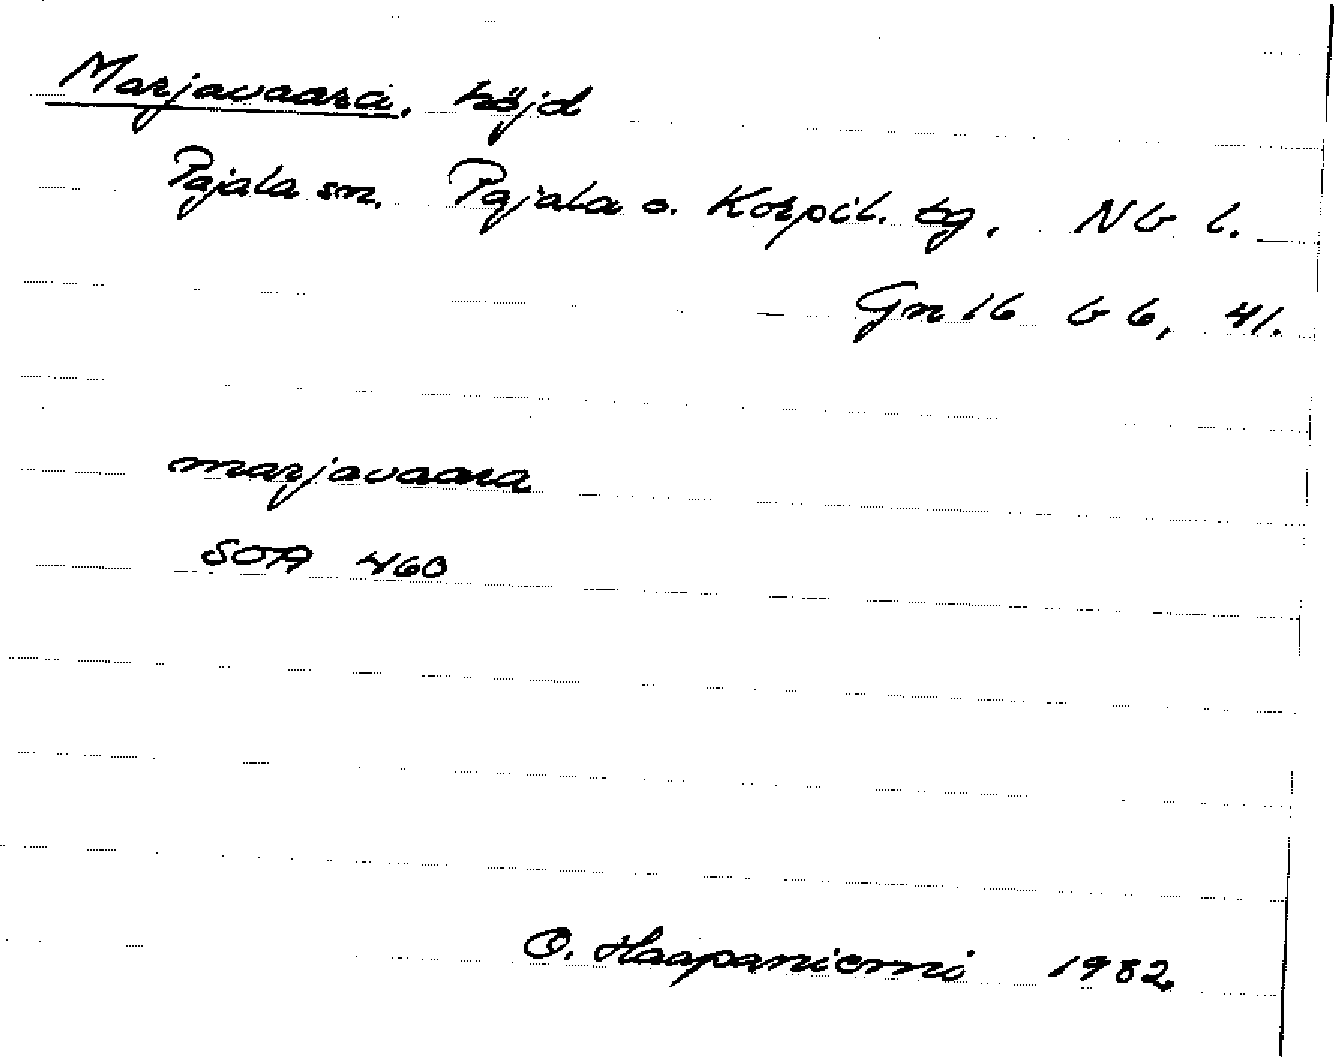 Marjavaara, höjd
Pajala sn. Pajala o. Korpil. tg. Nb l.
Gnlb b 6, 41.
marjavaara
SOA 460
O. Haapaniemi 1982